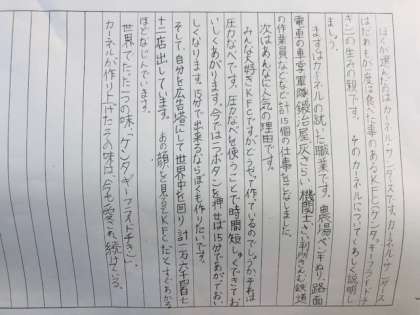 ぼくが選んだ人はカーネルサンダースです。カーネルサンダース
はだれもが一度は食べた事のあるKFC(ケンタッキーフライドチ
キン)の生みの親です。そのカーネルについてくわしく説明し
ましょう。
まずはカーネルの就いた職業です。農場、ペンキぬり、路面
電車の車掌、軍隊、鍛冶屋、灰さらい、機関士、さい判所、さらに鉄道
の作業員などなど計15個の仕事をこなしました。
次はあんなに人気の理由です。
みんな大好きKFCですがどうやって作ているのでしょうか、それは
圧力なべです。圧力なべを使うことで時間短しゅくできてお
いしくあがります。今では一つボタンを押せば15分であがってお
しくなります。15分で出来るならぼくも作りたいです。
そして、自分を広告塔にして世界中を回り計一万八千四百七
十二店出しています。あの顔を見るとKFCだとすぐわかる
ほどなじんでいます。
世界でたった一つの味「ケンタッキーフライドチキン」、
カーネルが作り上げたその味は、今も愛され続けている。